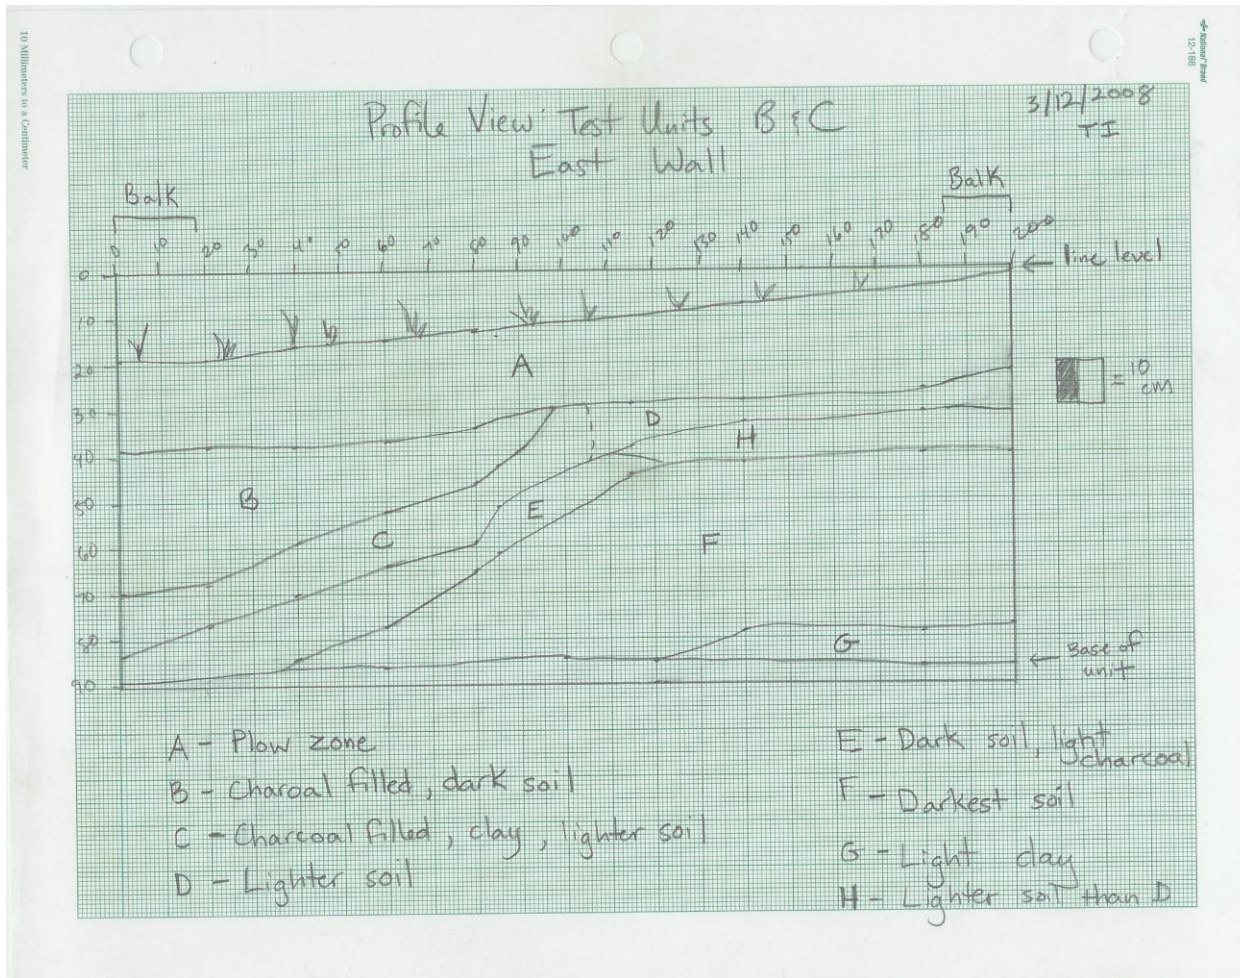 National® Brand
12-188
10 Millimeters to a Centimeter
Profile View: Test Units B & C
East Wall
3/12/2008
TI
Balk
Balk
0 10 20 30 40 50 60 70 80 90 100 110 120 130 140 150 160 170 180 190 200
← line level
0
10
20
30
40
50
60
70
80
90
A
B
C
D
E
F
G
H
= 10 cm
← Base of
unit
A - Plow zone
B - Charoal filled, dark soil
C - Charcoal filled, clay, lighter soil
D - Lighter soil
E - Dark soil, light
charcoal
F - Darkest soil
G - Light clay
H - Lighter soil than D